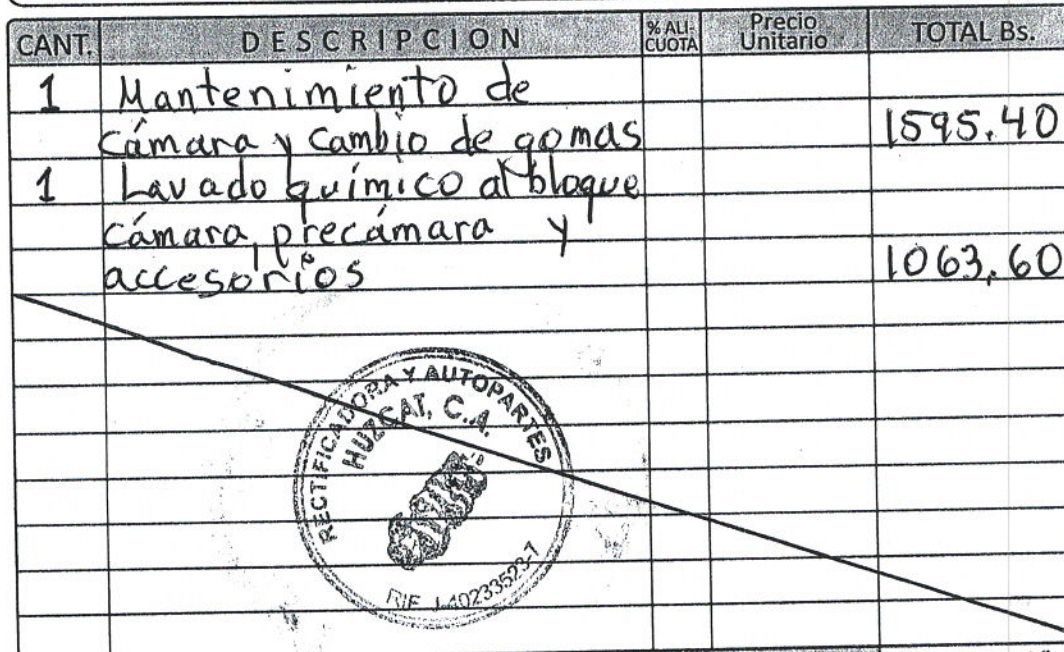 CANT. DESCRIPCION % ALI-CUOTA Precio Unitario TOTAL Bs.
1 Mantenimiento de
cámara y cambio de gomas 1595.40
1 Lavado químico al bloque
cámara, precámara y
accesorios 1063,60
RECTIFICADORA Y AUTOPARTES
HUZCAT, C.A.
RIF J-40233523-7